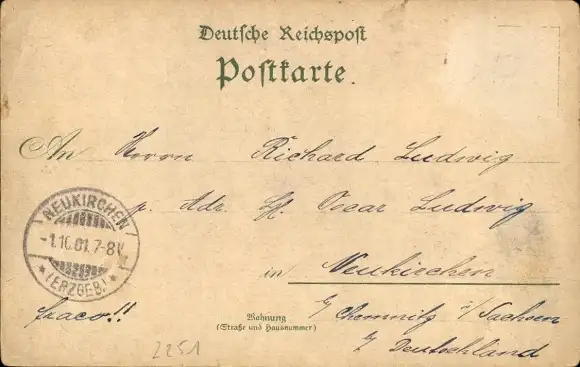 Deutsche Reichspost
Postkarte.
An Herrn Richard Ludwig
p. Adr. Hf. Oscar Ludwig
NEUKIRCHEN
-1.10.01. 7-8V.
* (ERZGEB.) *
in Neukirchen
b/ Chemnitz i/ Sachsen
b/ Deutschland
fraco!!
Wohnung
(Straße und Hausnummer)
2251